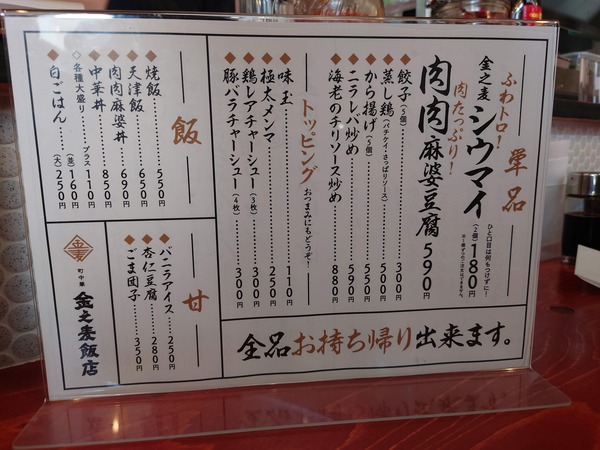 単品
ふわトロ！
金之麦シウマイ
ひと口目は何もつけずに！
(2個)180円
肉たっぷり！
肉肉麻婆豆腐 590円
◆餃子(5個) 300円
◆蒸し鶏(パクチイ、さっぱりソース) 500円
◆から揚げ(5個) 550円
◆ニラレバ炒め 590円
◆海老のチリソース炒め 880円
トッピング
おつまみにもどうぞ！
◆味玉 110円
◆極太メンマ 250円
◆鶏レアチャーシュー(3枚) 300円
◆豚バラチャーシュー(4枚) 300円
飯
◆焼飯 550円
◆天津飯 650円
◆肉肉麻婆丼 690円
◆中華丼 850円
◇各種大盛り プラス 110円
◆白ごはん (並)160円
(大)250円
甘
◆バニラアイス 250円
◆杏仁豆腐 280円
◆ごま団子 350円
全品お持ち帰り出来ます。
金麦
町中華
金之麦飯店